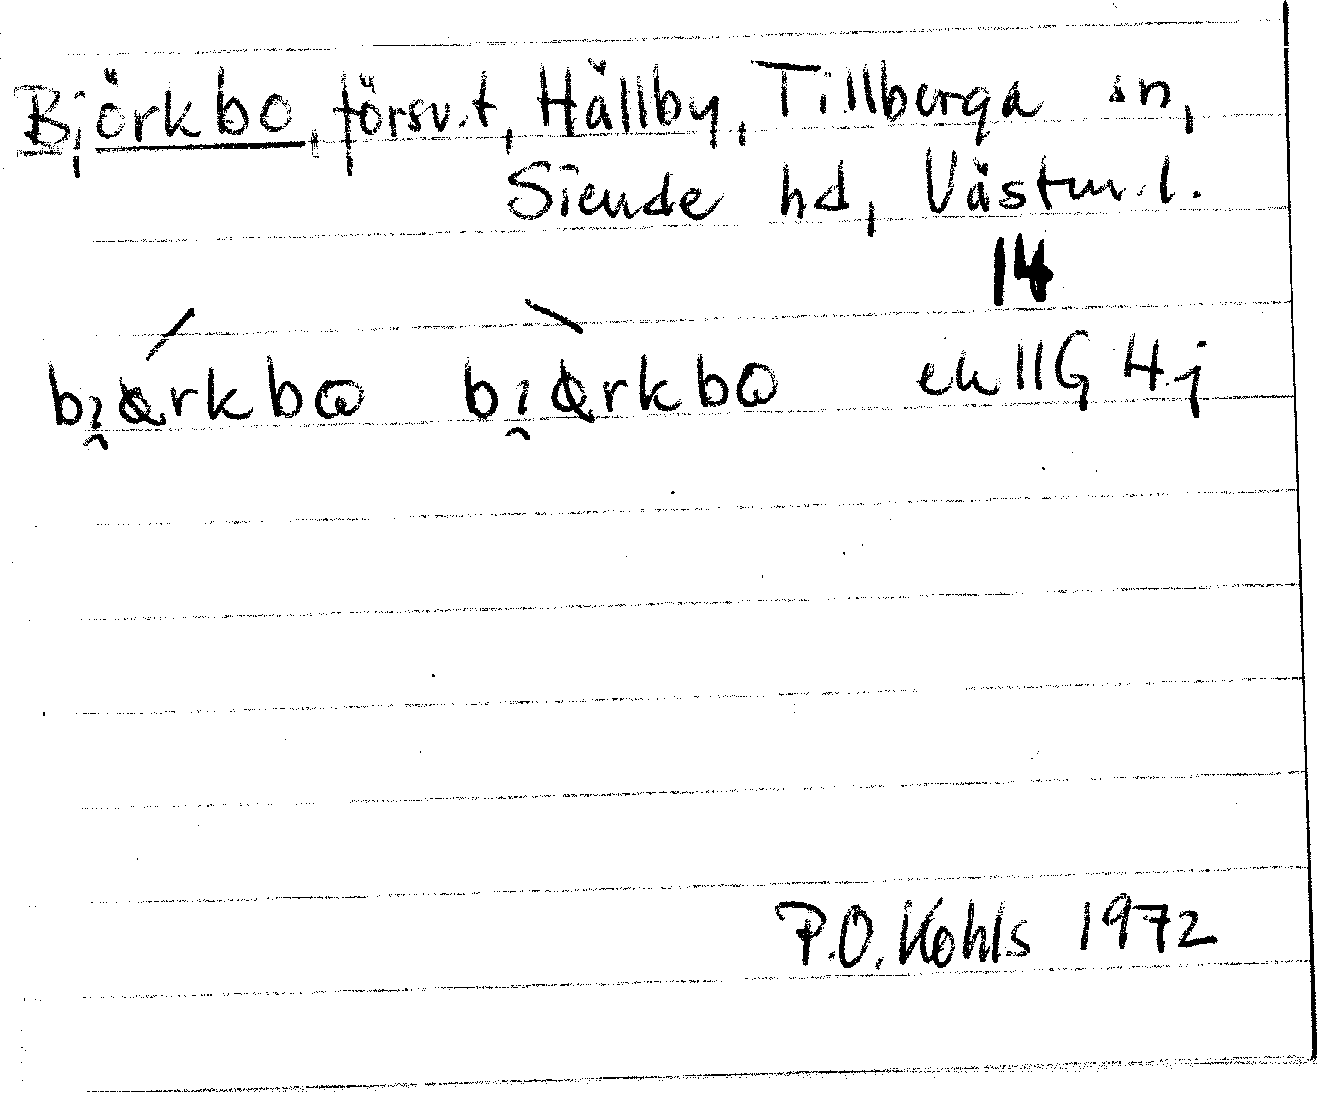 Björkbo, försv.t, Hällby, Tillberga sn,
Siende hd, Västm.l.
14
ek 11G 4j
P.O. Kohls 1972